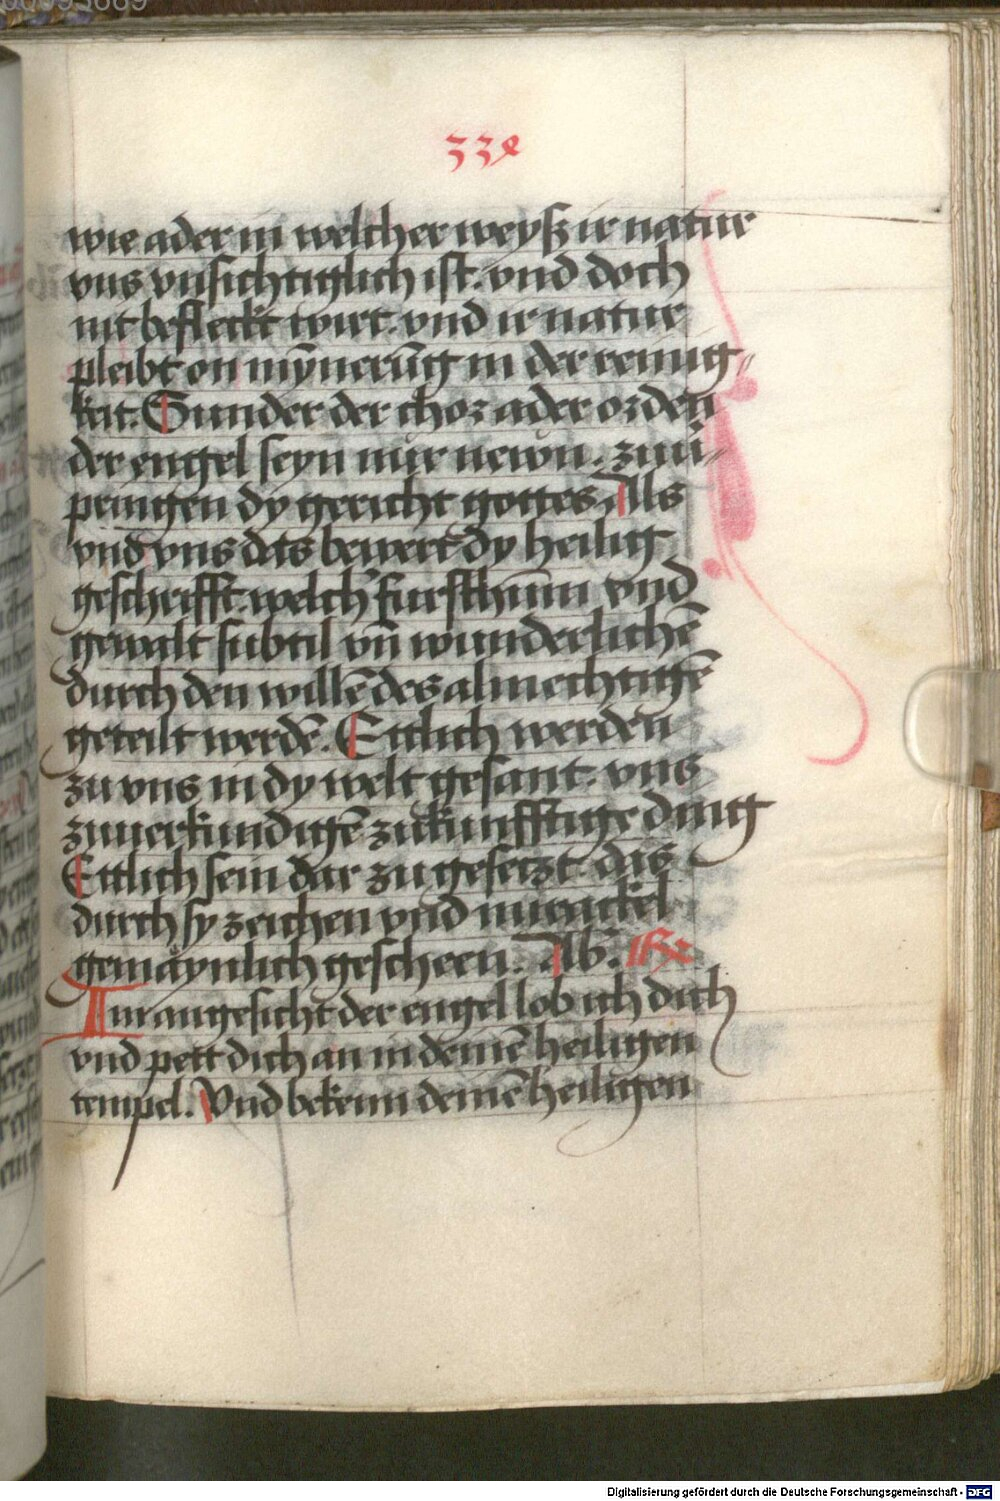 334
wie ader in welcher weyß ir natur
vns vnsichtiglich ist. vnd doch
nit befleckt wirt. vnd ir natur
pleibt on mȳnerūg in der reinig-
keit. Sunder der chor ader orden
der engel seyn nür newn. zuu̇-
pringen dy gericht gottes. Als
vnd vns das bewert dy heilig
geschrifft. welch furstthum vnd
gewalt subtil vn̄ wunderlichē
durch den willē des almechtigē
geteilt werdē. Ettlich werden
zu vns in dy welt gesant. vns
zuuerkundigē zukunfftige ding
Ettlich sein dar zu gesetzt. das
durch sy zeichen vnd mirackel
gemaynlich gescheen. Ab.
Im angesicht der engel lob ich dich
vnd pett dich an in deinē heiligen
tempel. Vnd bekenn deinē heiligen
Digitalisierung gefördert durch die Deutsche Forschungsgemeinschaft - DFG